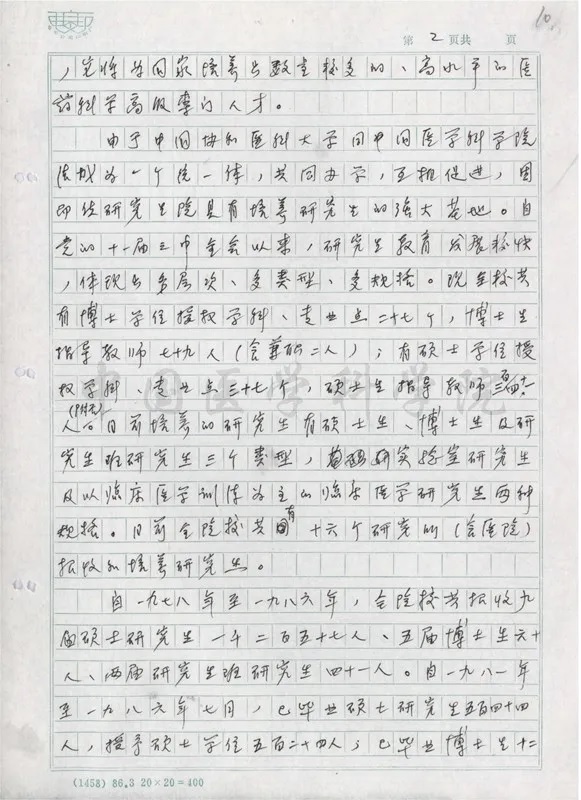 第 2 页共 页
10
，定将为国家培养出数量较多的、高水平的医
药科学高级专门人才。
由于中国协和医科大学同中国医学科学院
院校为一个统一体，共同办学，互相促进，因
即使研究生院具有培养研究生的强大基地。自
党的十一届三中全会以来，研究生教育发展较快
，体现出多层次、多类型、多规格。现全校共
有博士学位授权学科、专业点二十七个，博士生
指导教师七十九人（含兼职二人）；有硕士学位授
权学科、专业点三十七个，硕士生指导教师三百四十六
人。目前培养的研究生有硕士生、博士生及研
（附无）
究生班研究生三个类型，有实验室研究生
及以临床医学训练为主的临床医学研究生两种
规格。目前全院校共有十六个研究所（含医院）
招收和培养研究生。
自一九七八年至一九八六年，全院校共招收九
届硕士研究生一千二百五十七人、五届博士生六十
人、两届研究生班研究生四十一人。自一九八一年
至一九八六年七月，已毕业硕士研究生五百四十四
人，授予硕士学位五百二十四人；已毕业博士生十二
中国医学科学院
(1458) 86.3 20×20=400